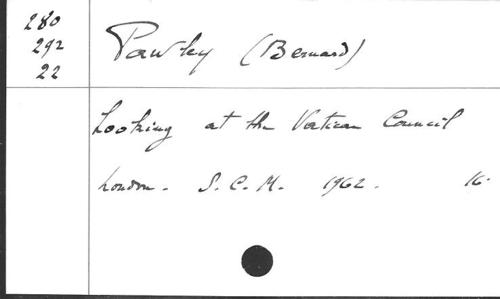 280
292
22
Pawley (Bernard)
Looking at the Vatican Council
London. S.C.M. 1962. 16.